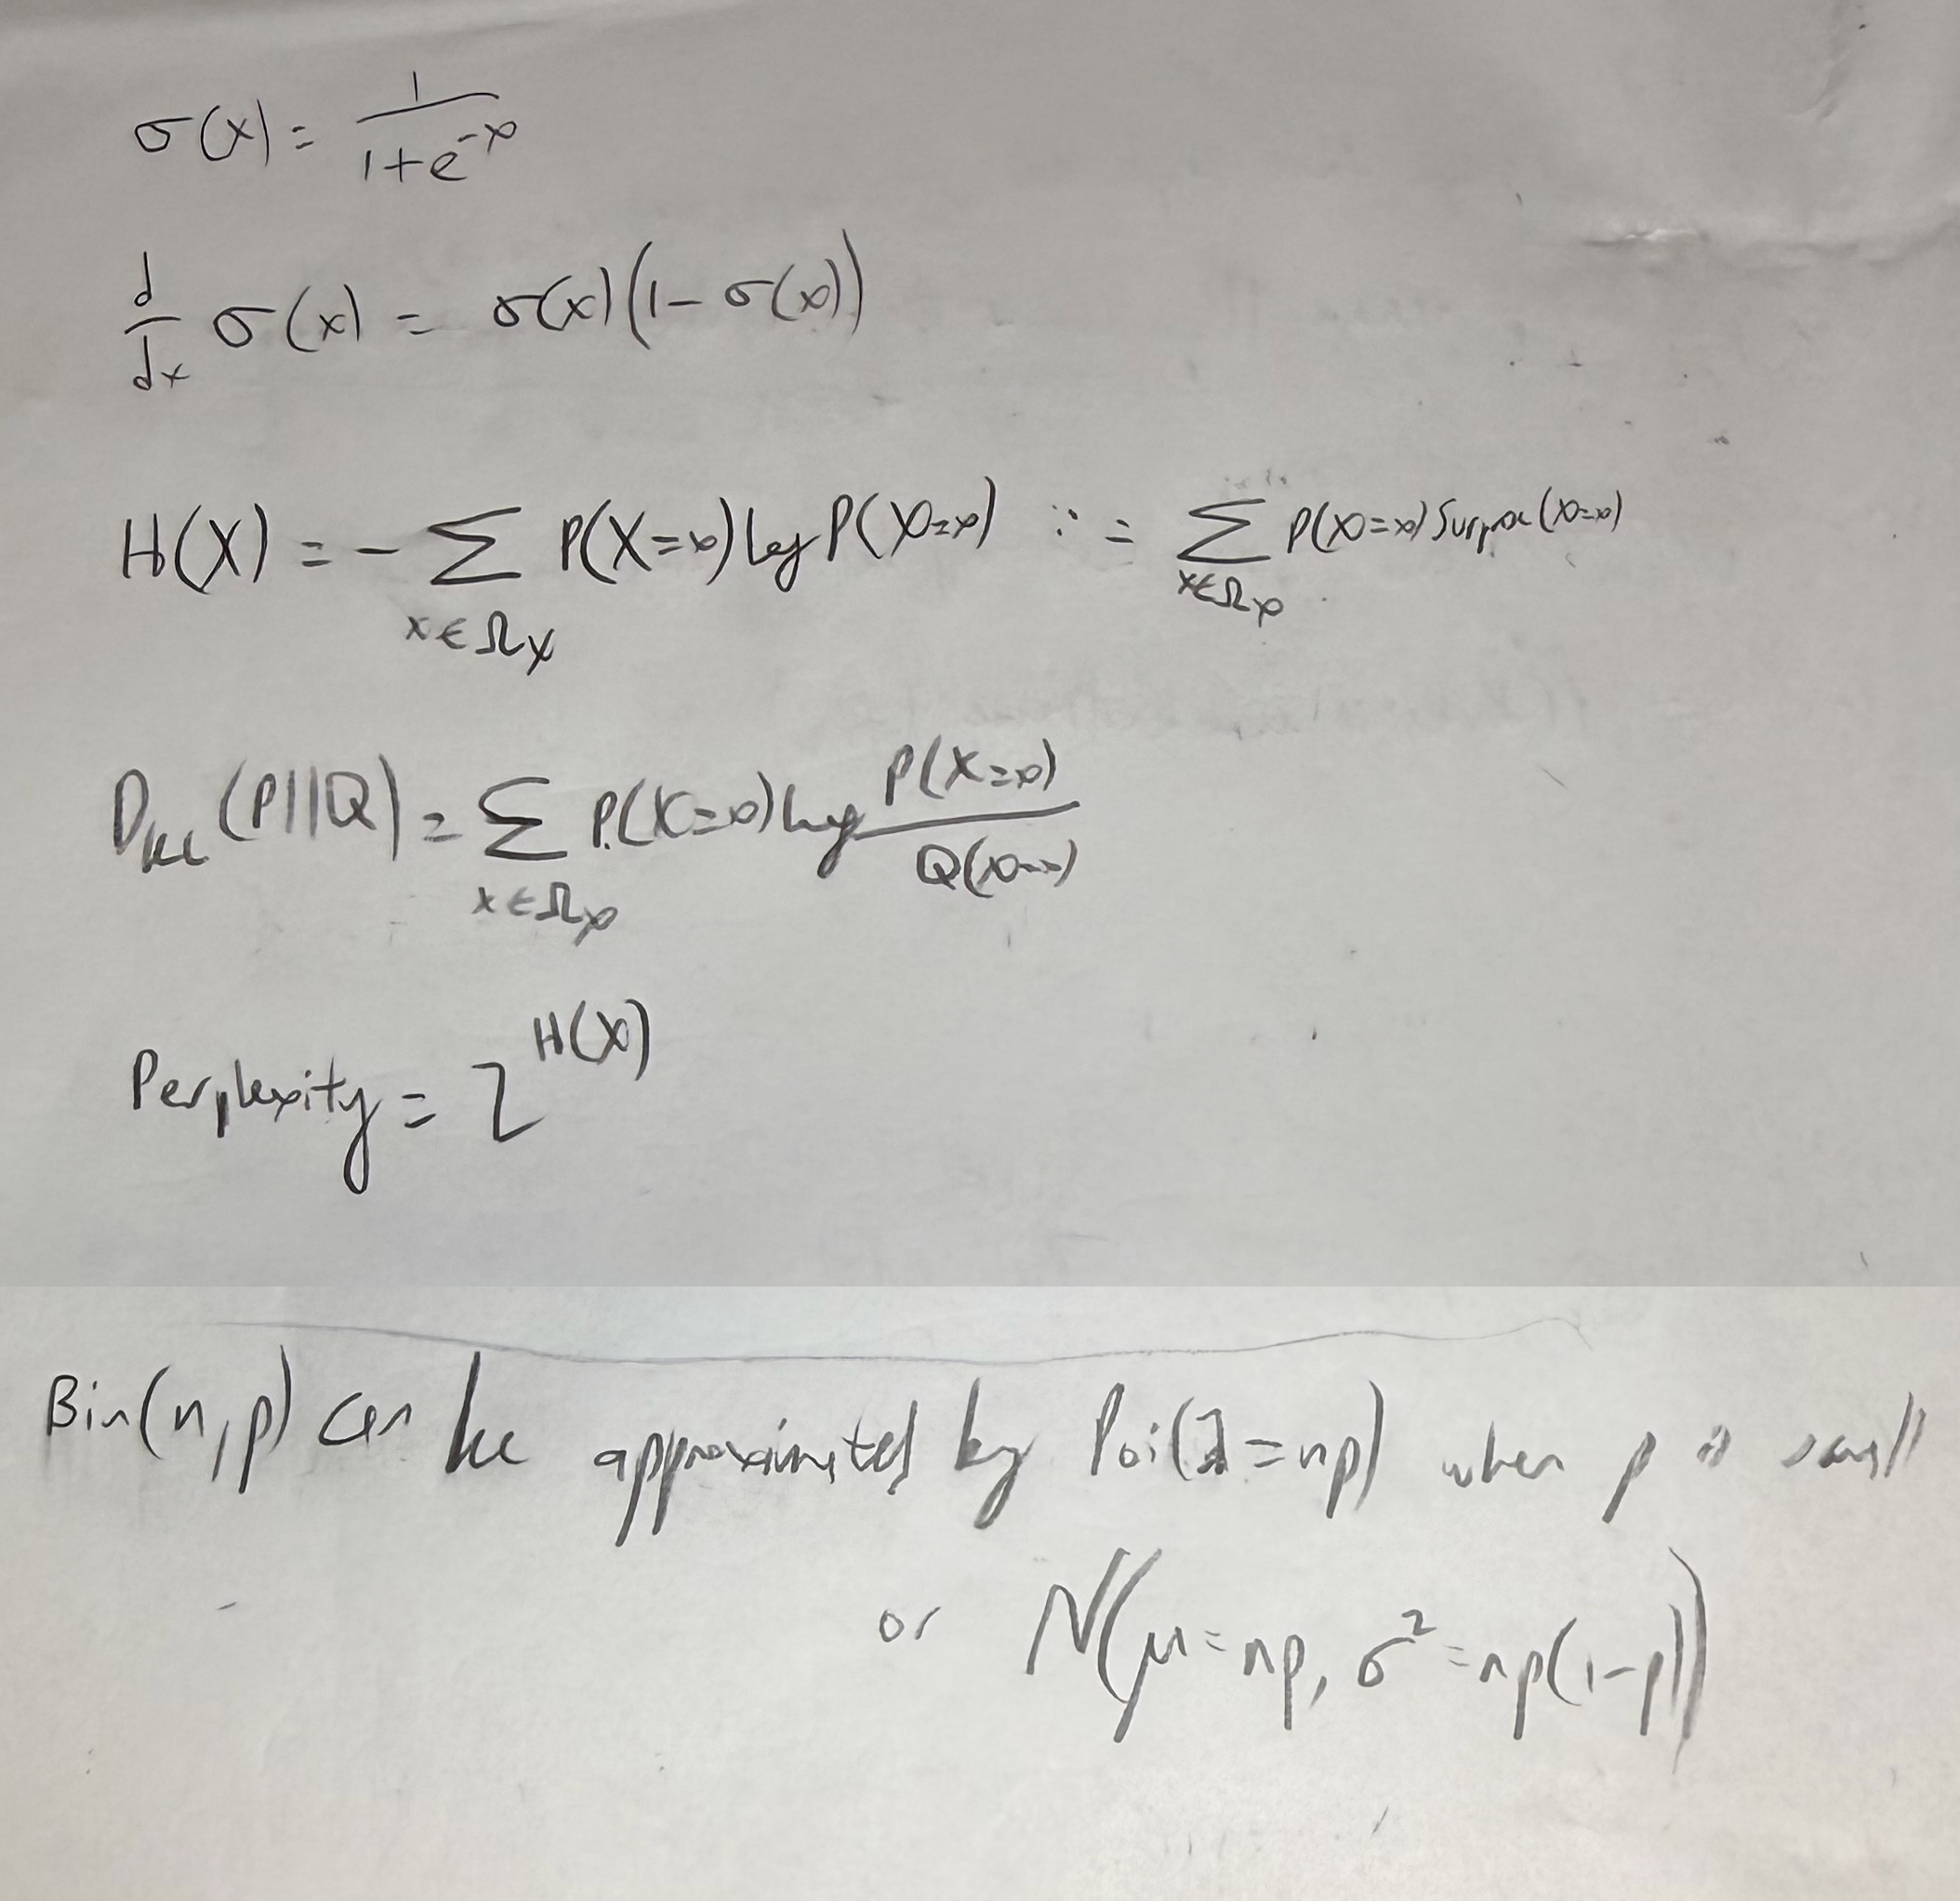 σ(x) = 1 / (1 + e^{-x})
d/dx σ(x) = σ(x)(1 - σ(x))
H(X) = - ∑_{x∈Ω_X} P(X=x) log P(X=x) ∴ = ∑_{x∈Ω_X} P(X=x) Surprise(X=x)
D_{KL}(P||Q) = ∑_{x∈Ω_X} P(X=x) log P(X=x) / Q(X=x)
Perplexity = 2^{H(X)}
Bin(n,p) can be approximated by Poi(λ=np) when p is small
or N(μ=np, σ²=np(1-p))